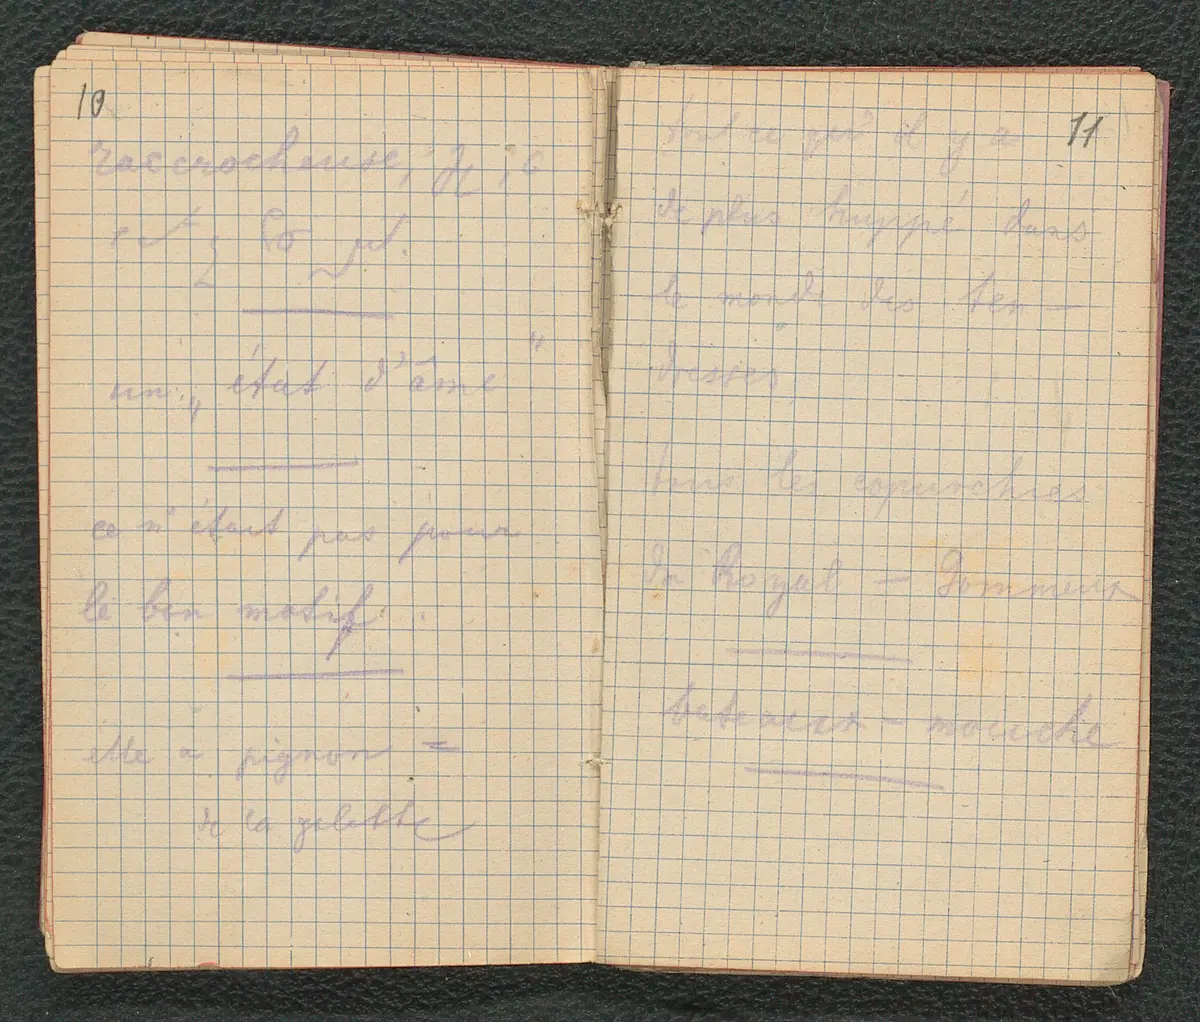 10
raccrocheuse,
un „ état d'âme "
ce n'était pas pour
le bon motif.
elle a pignon —
de la galette
11
tout ce qu'il y a
de plus huppé dans
le monde des ten-
dresses
tous les copurchics
du Royal - Gommeux
bateaux - mouche